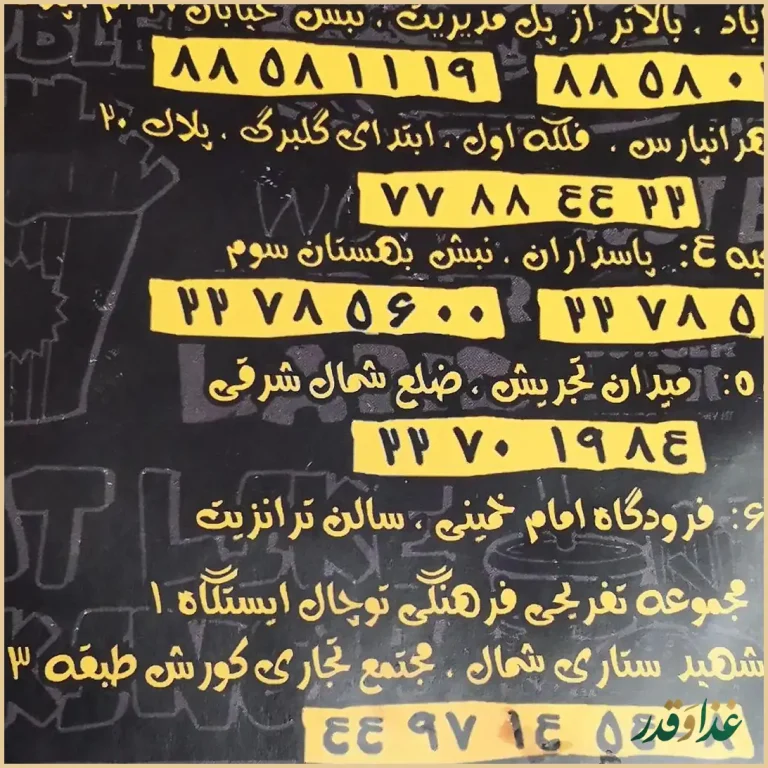 باد ، بالاتر از پل مدیریت ، نبش خیابان
۸۸ ۵۸ ۱۱ ۱۹
۸۸ ۵۸
تهرانپارس ، فلکه اول ، ابتدای گلبرگ ، پلاک ۲۰
۷۷ ۸۸ ٤٤ ۲۲
به ٤: پاسداران ، نبش بهستان سوم
۲۲ ۷۸ ۵۶۰۰
۲۲ ۷۸ ۵
۵: میدان تجریش ، ضلع شمال شرقی
۲۲ ۷۰ ۱۹ ۸٤
۶: فرودگاه امام خمینی ، سالن ترانزیت
مجموعه تفریحی فرهنگی توچال ایستگاه ۱
شهید ستاری شمال ، مجتمع تجاری کورش طبقه ۳
٤٤ ۹۷ ۱٤ ۵٤
غذا و قدر